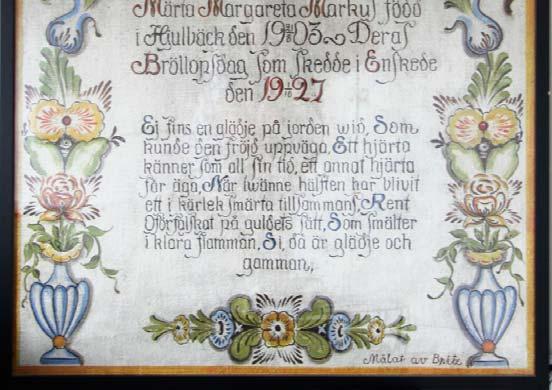 Märta Margareta Markus född
i Hulbäck den 19 03 Deras
Bröllopsdag som skedde i Enskede
den 19 27
Ej fins en glädje på jorden wid, Som
kunde den fröjd uppväga, Ett hjärta
känner som all sin tid, ett annat hjärta
får äga, När twänne hälften har blivit
ett i kärlek smärta tillsammans, Rent
Oförfalskat på guldets sätt, Som smälter
i klara flamman, Si, då är glädje och
gamman,
Målat av Britt